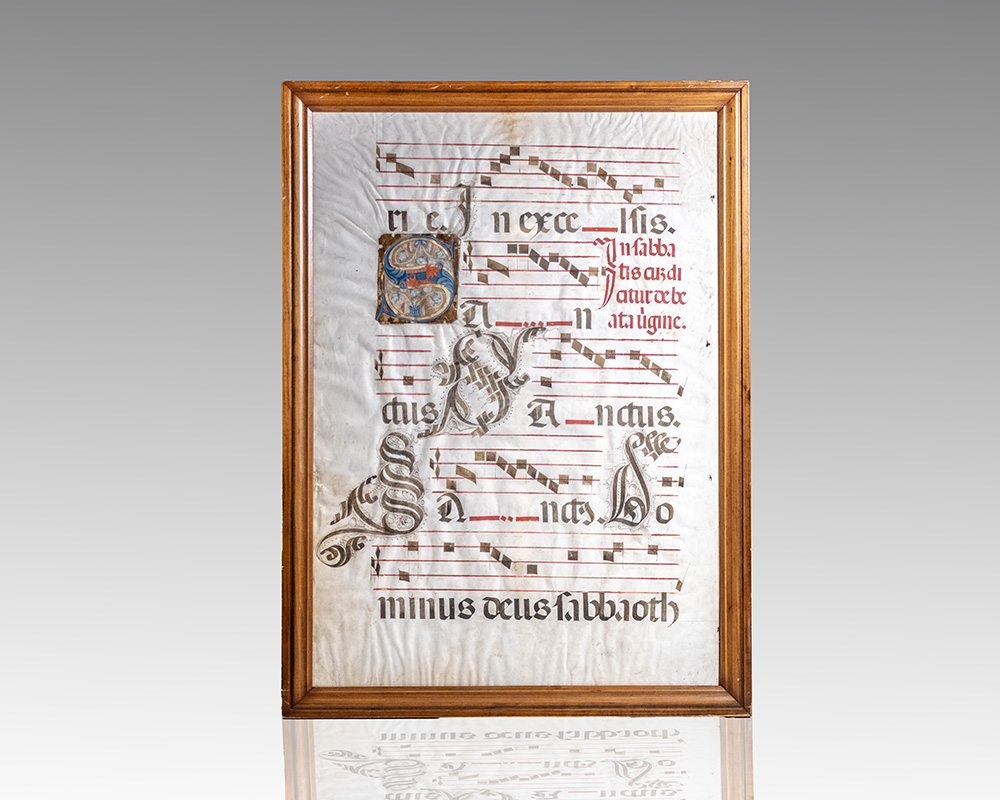 ri e. In exce lsis.
In sabba
tis cuz di
citur de be
ata v̄gine.
SA n
ctus SA nctus.
SA nctꝰ. Do
minus deus sabbaoth